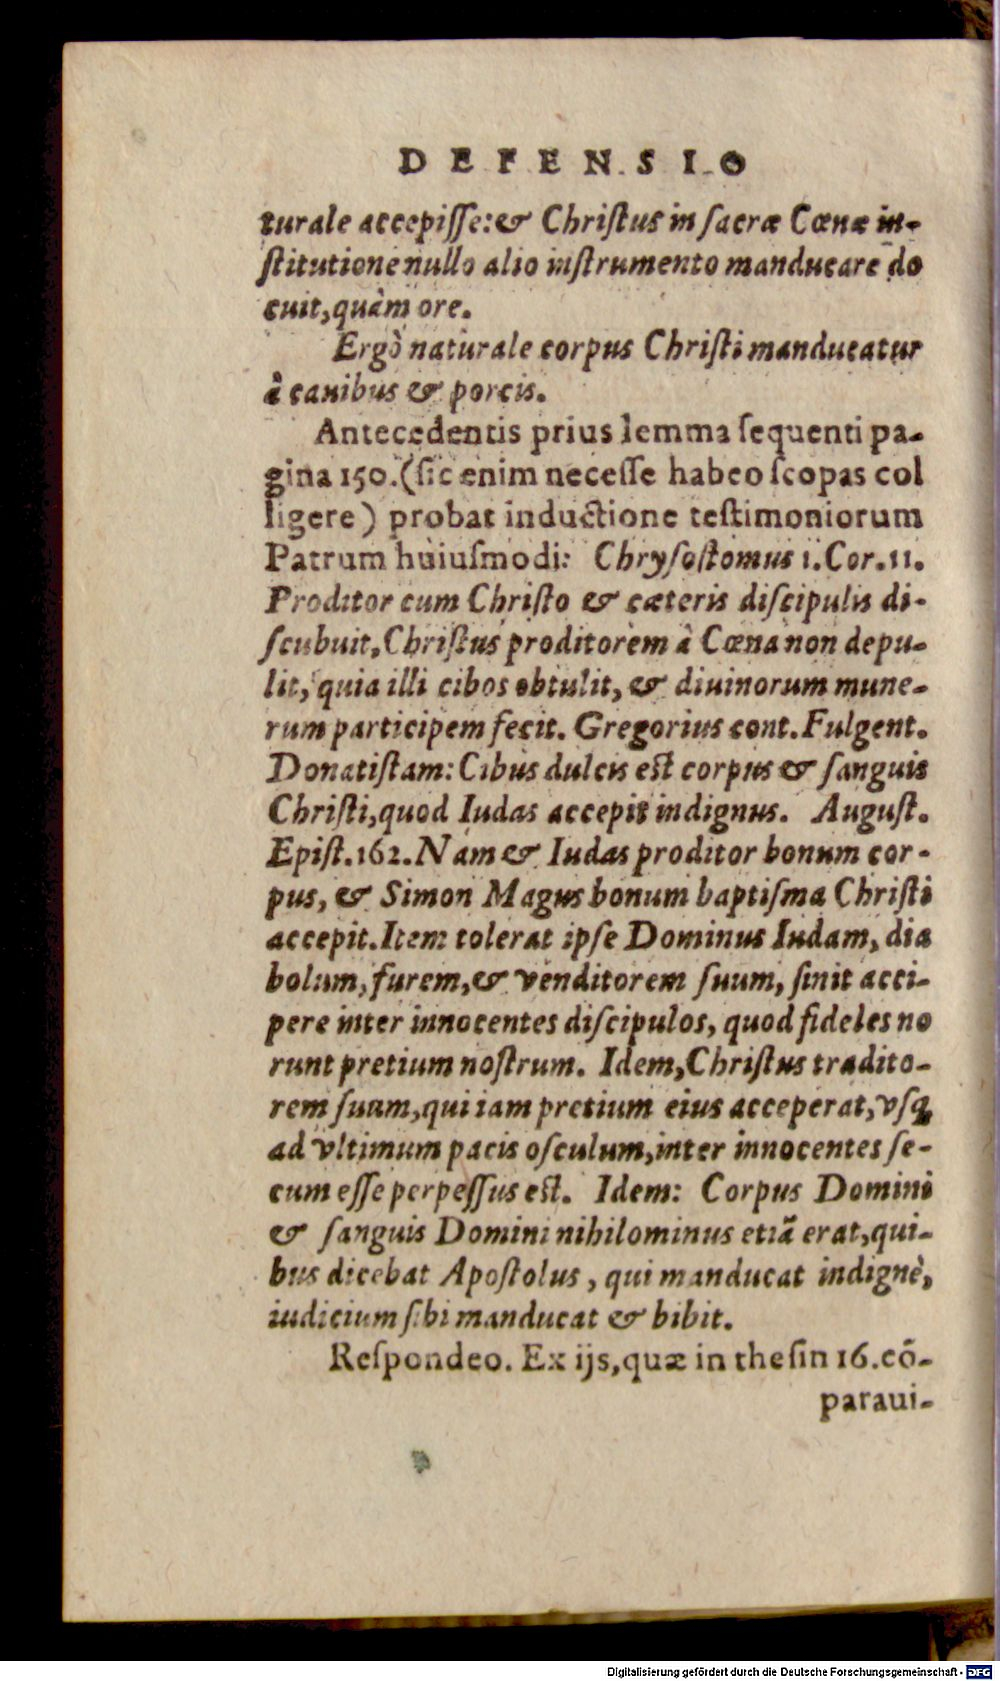 DEFENSIO
turale accepiſſe:& Chriſtus in ſacræ Cœnæ in-
ſtitutione nullo alio inſtrumento manducare do
cuit,quàm ore.
Ergò naturale corpus Chriſti manducatur
à canibus & porcis.
Antecedentis prius lemma ſequenti pa-
gina 150.(ſic enim neceſſe habeo ſcopas col
ligere) probat inductione teſtimoniorum
Patrum huiuſmodi: Chryſoſtomus 1.Cor.11.
Proditor cum Chriſto & cæteris diſcipulis di-
ſcubuit,Chriſtus proditorem à Cœna non depu-
lit, quia illi cibos obtulit, & diuinorum mune-
rum participem fecit. Gregorius cont.Fulgent.
Donatiſtam: Cibus dulcis eſt corpus & ſanguis
Chriſti,quod Iudas accepit indignus. Auguſt.
Epiſt.162.Nam & Iudas proditor bonum cor-
pus, & Simon Magus bonum baptiſma Chriſti
accepit.Item tolerat ipſe Dominus Iudam, dia
bolum, furem,& venditorem ſuum, ſinit acci-
pere inter innocentes diſcipulos, quod fideles no
runt pretium noſtrum. Idem,Chriſtus tradito-
rem ſuum,qui iam pretium eius acceperat,vſq;
ad vltimum pacis oſculum,inter innocentes ſe-
cum eſſe perpeſſus eſt. Idem: Corpus Domini
& ſanguis Domini nihilominus etiã erat,qui-
bus dicebat Apoſtolus, qui manducat indignè,
iudicium ſibi manducat & bibit.
Reſpondeo. Ex ijs,quæ in theſin 16.cõ-
paraui-
Digitalisierung gefördert durch die Deutsche Forschungsgemeinschaft - DFG